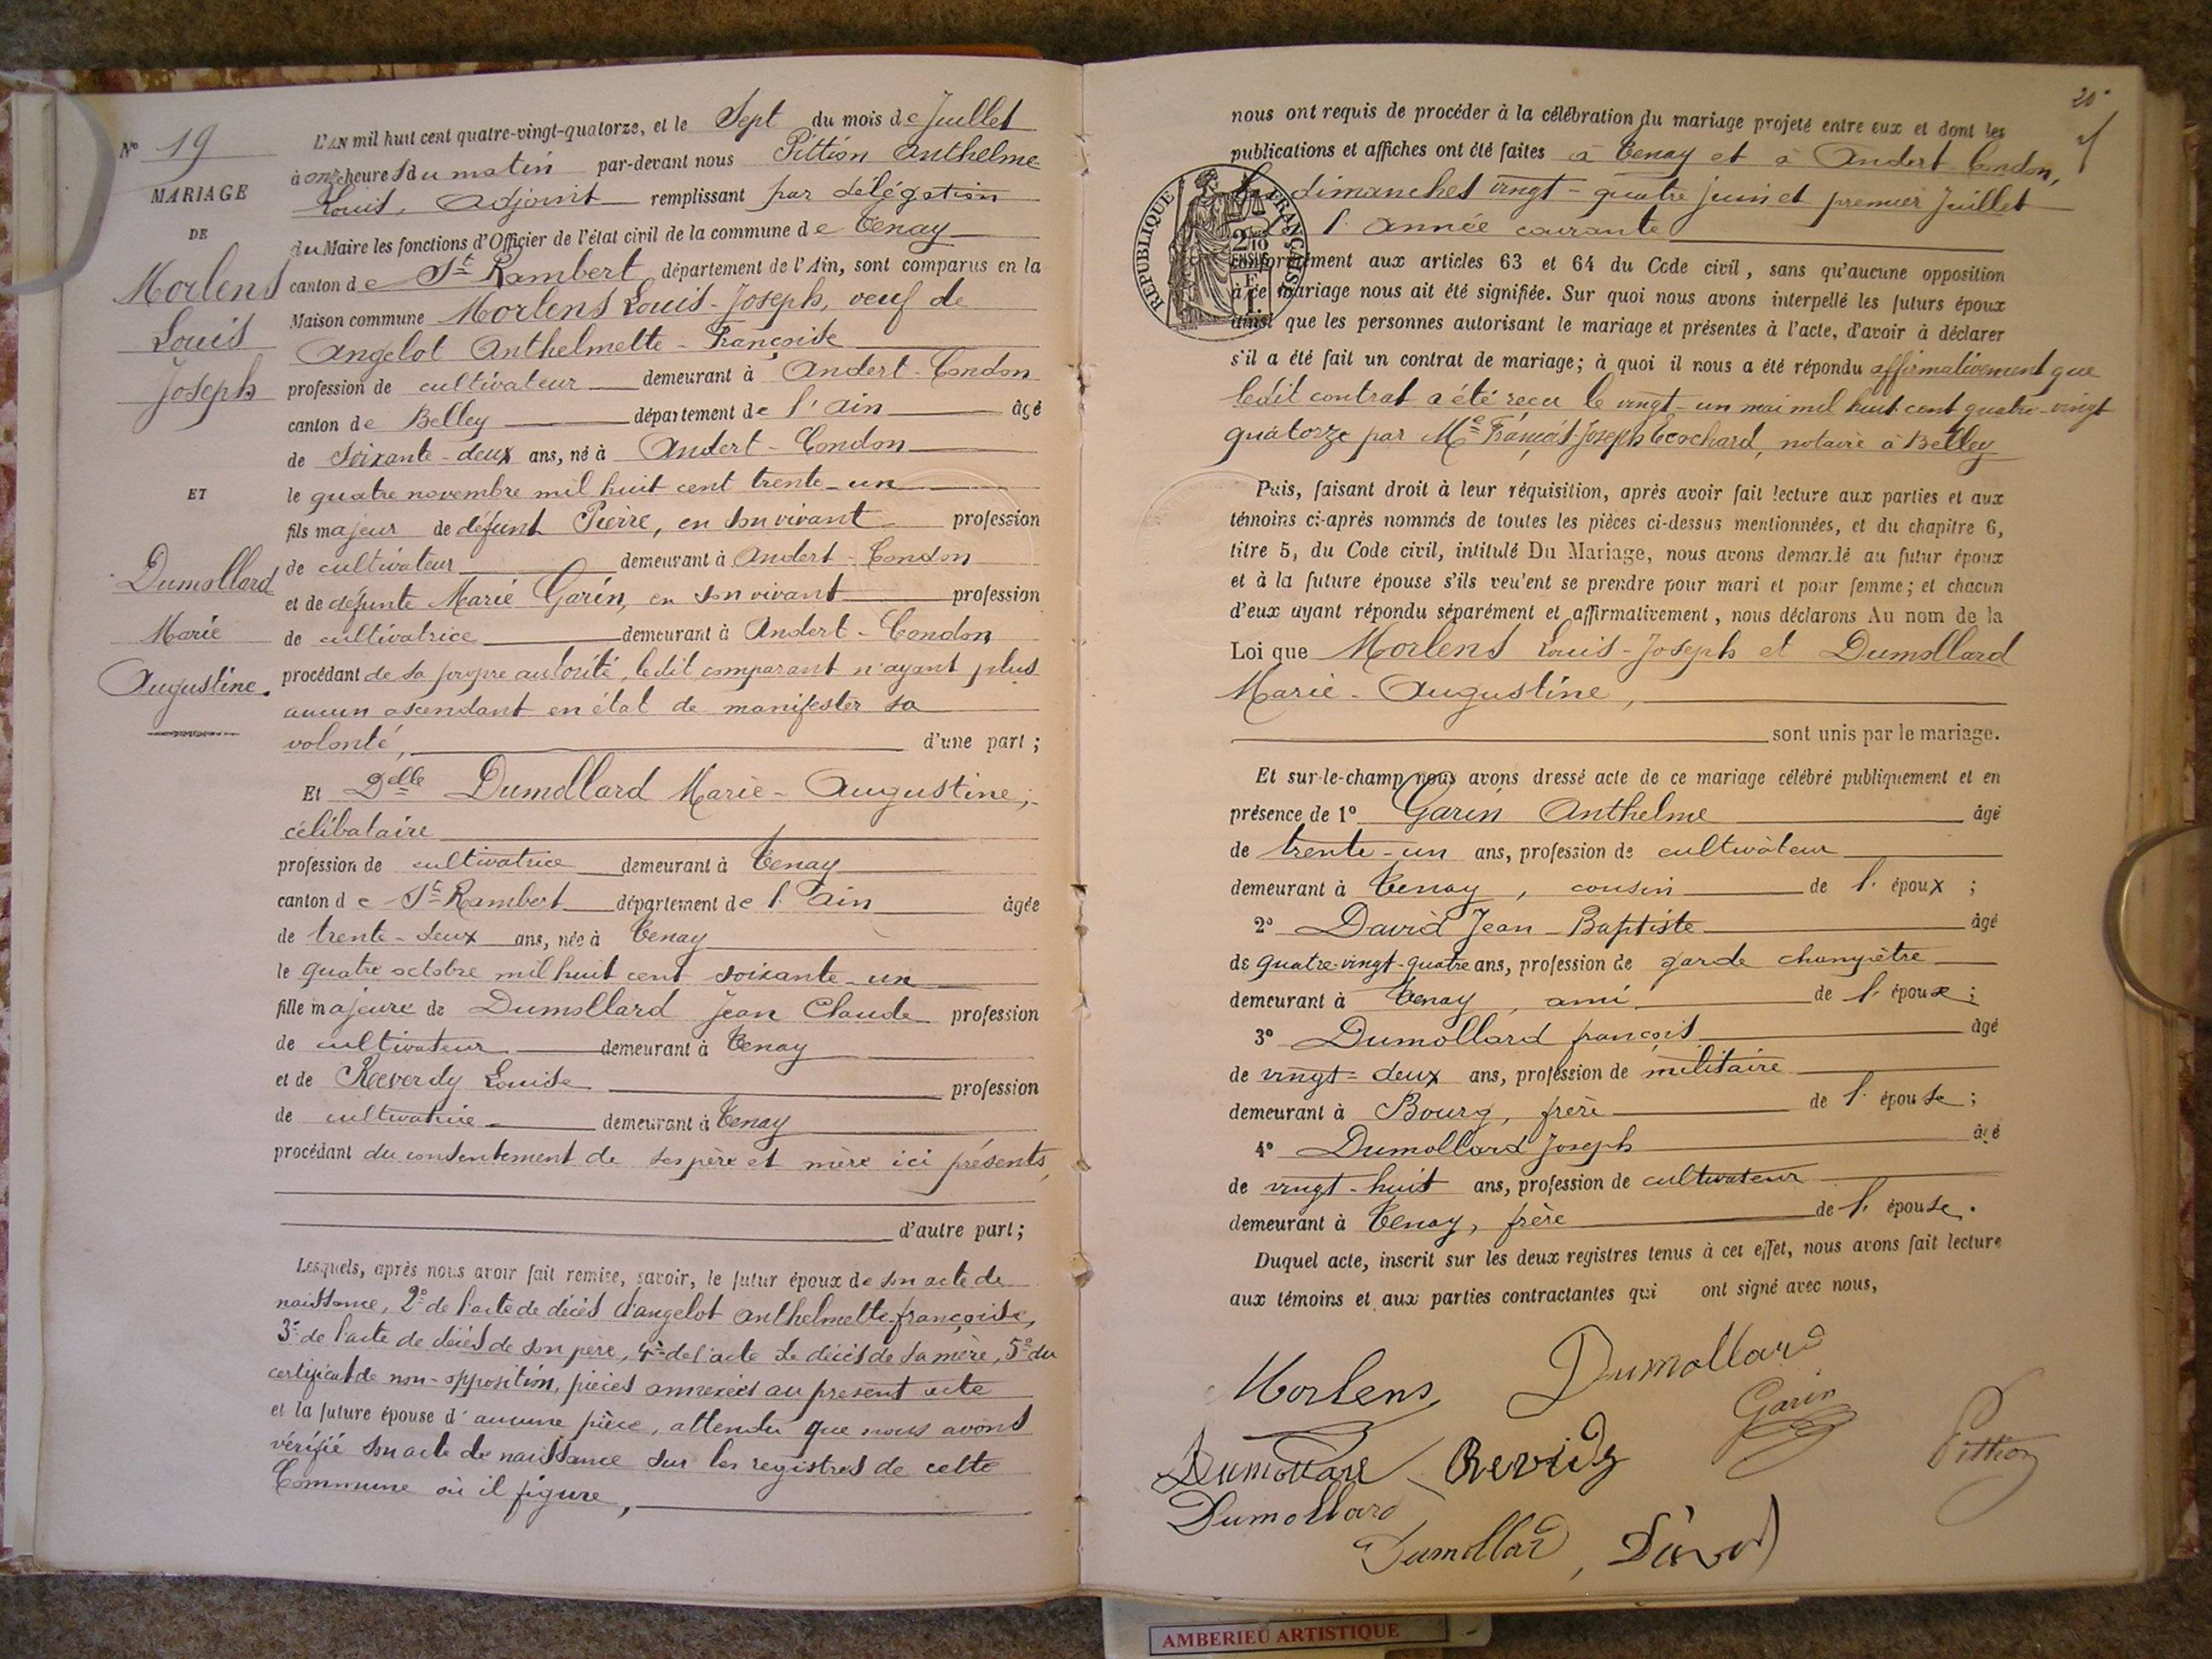 Nº 19
MARIAGE
DE
Morlens
Louis
Joseph
ET
Dumollard
Marie
Augustine.
L'AN mil huit cent quatre-vingt-quatorze, et le Sept du mois de Juillet
à onze heures du matin par-devant nous Pittion Anthelme
Louis, Adjoint remplissant par délégation
du Maire les fonctions d'Officier de l'état civil de la commune de Tenay
canton de St Rambert, département de l'Ain, sont comparus en la
Maison commune Morlens Louis-Joseph, veuf de
Angelot Anthelmette-Françoise
profession de cultivateur demeurant à Andert-Condon
canton de Belley département de l'Ain âgé
de soixante-deux ans, né à Andert-Condon
le quatre novembre mil huit cent trente-un
fils majeur de défunt Pierre, en son vivant profession
de cultivateur demeurant à Andert-Condon
et de défunte Marie Garin, en son vivant profession
de cultivatrice demeurant à Andert-Condon
procédant de sa propre autorité, ledit comparant n'ayant plus
aucun ascendant en état de manifester sa
volonté, d'une part;
Et Delle Dumollard Marie-Augustine,
célibataire
profession de cultivatrice demeurant à Tenay
canton de St Rambert département de l'Ain âgée
de trente-deux ans, née à Tenay
le quatre octobre mil huit cent soixante-un
fille majeure de Dumollard Jean Claude profession
de cultivateur demeurant à Tenay
et de Reverdy Louise profession
de cultivatrice demeurant à Tenay
procédant du consentement de ses père et mère ici présents,
d'autre part;
Lesquels, après nous avoir fait remise, savoir, le futur époux de son acte de
naissance, 2º de l'acte de décès d'angelot anthelmette-françoise,
3º de l'acte de décès de son père, 4º de l'acte de décès de sa mère, 5º du
certificat de non-opposition, pièces annexées au présent acte
et la future épouse d'aucune pièce, attendu que nous avons
vérifié son acte de naissance sur les registres de cette
Commune où il figure,
20
nous ont requis de procéder à la célébration du mariage projeté entre eux et dont les
publications et affiches ont été faites à Tenay et à Andert-Condon,
les dimanches vingt-quatre juin et premier Juillet
l'année courante
conformément aux articles 63 et 64 du Code civil, sans qu'aucune opposition
à ce mariage nous ait été signifiée. Sur quoi nous avons interpellé les futurs époux
ainsi que les personnes autorisant le mariage et présentes à l'acte, d'avoir à déclarer
s'il a été fait un contrat de mariage; à quoi il nous a été répondu affirmativement que
ledit contrat a été reçu le vingt-un mai mil huit cent quatre-vingt
quatorze par Me François-Joseph Ecochard, notaire à Belley
Puis, faisant droit à leur réquisition, après avoir fait lecture aux parties et aux
témoins ci-après nommés de toutes les pièces ci-dessus mentionnées, et du chapitre 6,
titre 5, du Code civil, intitulé Du Mariage, nous avons demandé au futur époux
et à la future épouse s'ils veulent se prendre pour mari et pour femme; et chacun
d'eux ayant répondu séparément et affirmativement, nous déclarons Au nom de la
Loi que Morlens Louis-Joseph et Dumollard
Marie-Augustine,
sont unis par le mariage.
Et sur-le-champ nous avons dressé acte de ce mariage célébré publiquement et en
présence de 1º Garin Anthelme âgé
de trente-un ans, profession de cultivateur
demeurant à Tenay, cousin de l'époux;
2º David Jean-Baptiste âgé
de quatre-vingt-quatre ans, profession de garde champêtre
demeurant à Tenay, ami de l'épouse;
3º Dumollard françois âgé
de vingt-deux ans, profession de militaire
demeurant à Bourg, frère de l'épouse;
4º Dumollard Joseph âgé
de vingt-huit ans, profession de cultivateur
demeurant à Tenay, frère de l'épouse.
Duquel acte, inscrit sur les deux registres tenus à cet effet, nous avons fait lecture
aux témoins et aux parties contractantes qui ont signé avec nous,
Morlens Dumollard
Garin
Pittion
Dumollard Reverdy
Dumollard
Dumollard, David
REPUBLIQUE FRANÇAISE
2/10 EN SUS
AMBERIEU ARTISTIQUE